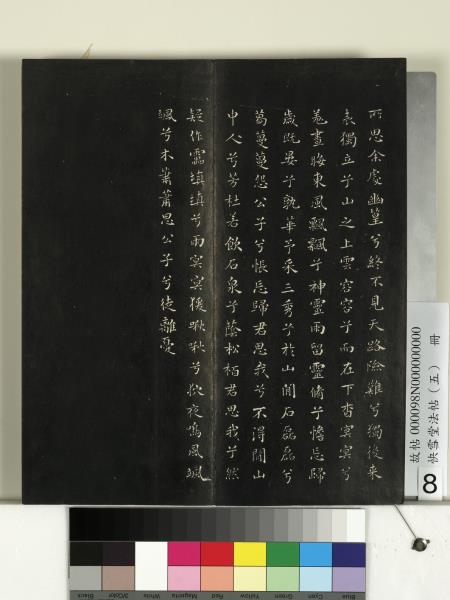 所思余處幽篁兮終不見天路險難兮獨後來
表獨立兮山之上雲容容兮而在下杳冥冥兮
羌晝晦東風飄飄兮神靈雨留靈脩兮憺忘歸
歲既晏兮孰華予采三秀兮於山間石磊磊兮
葛蔓蔓怨公子兮悵忘歸君思我兮不得閒山
中人兮芳杜若飲石泉兮蔭松栢君思我兮然
疑作靁填填兮雨冥冥猨啾啾兮狖夜鳴風颯
颯兮木蕭蕭思公子兮徒離憂
故帖 000098N000000000
快雪堂法帖（五） 冊
8
Blue Cyan Green Yellow Red Magenta White 3/Color Black